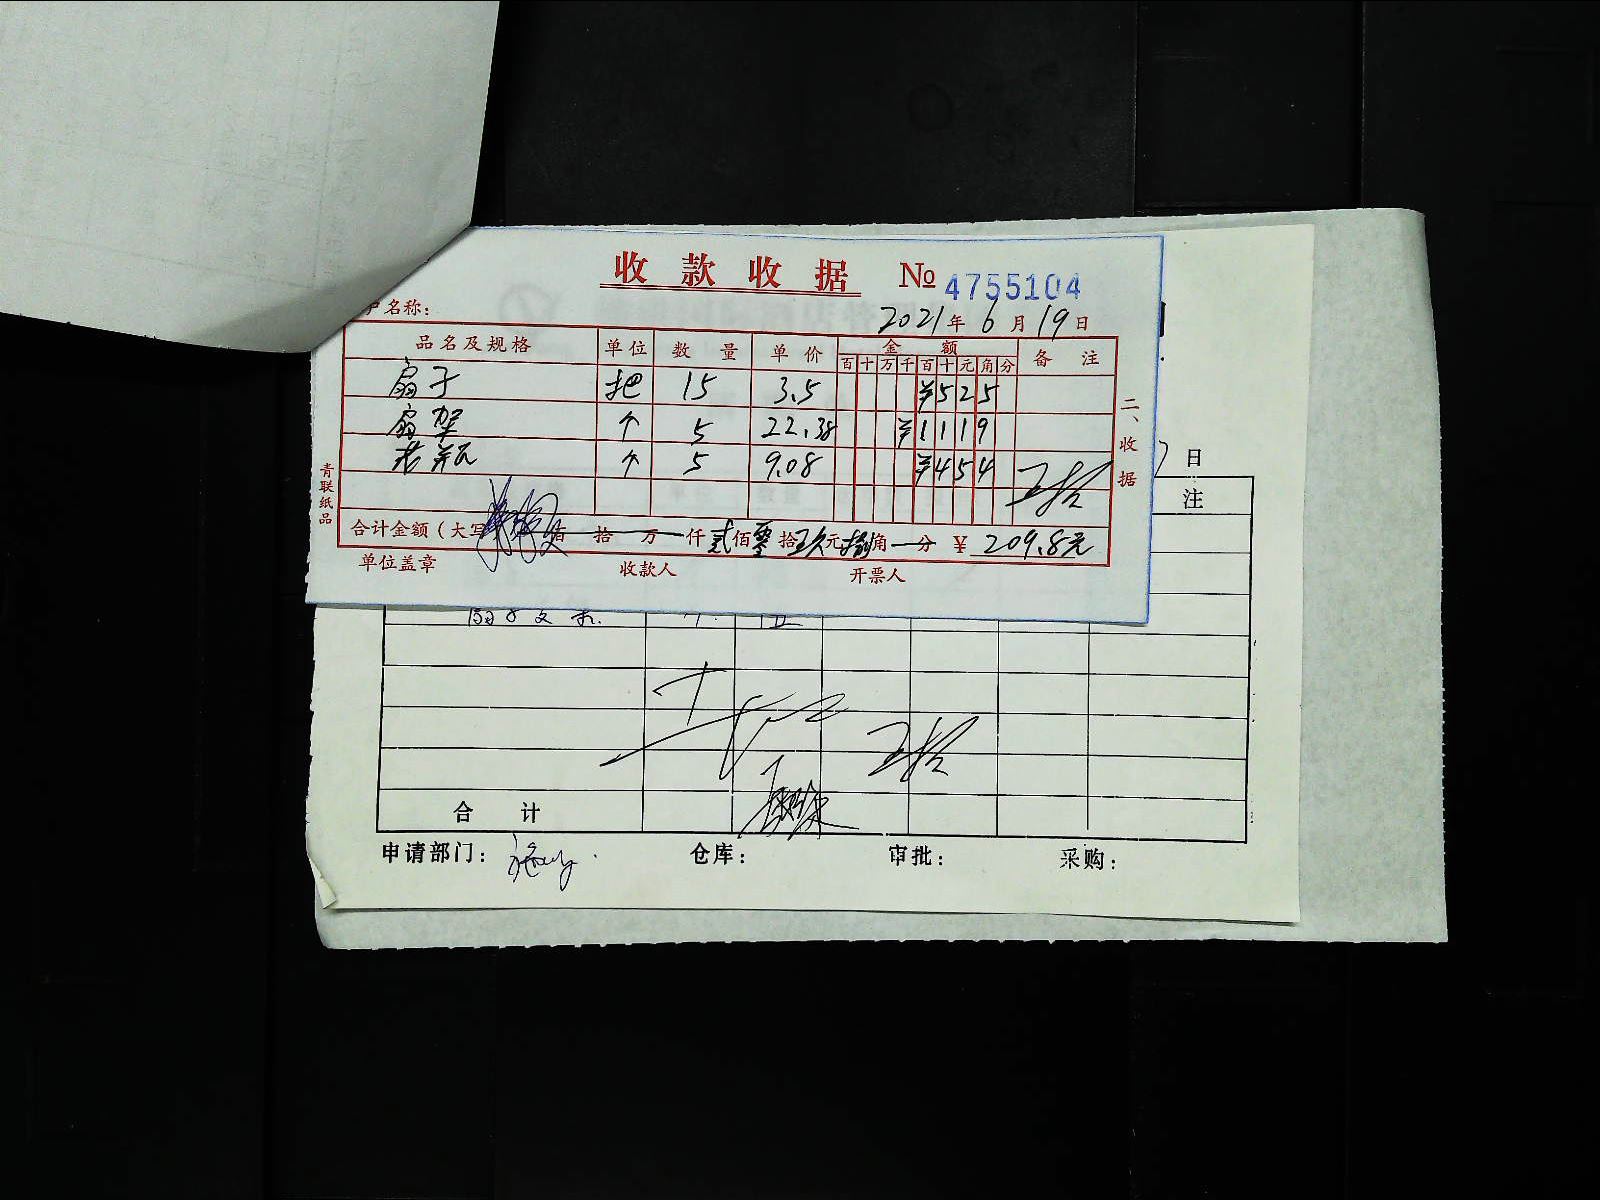 收款收据 № 4755104
户名称：
2021年6月19日
品名及规格 单位 数量 单价 金额 备注
百十万千百十元角分
扇子 把 15 3.5 ¥525
扇架 个 5 22.38 ¥1119
花瓶 个 5 9.08 ¥454
合计金额（大写 佰 拾 万 仟 贰佰零拾玖元捌角 分 ¥ 209.8元
单位盖章 收款人 开票人
二、收据
青联纸品
日
注
合计
申请部门： 仓库： 审批： 采购：